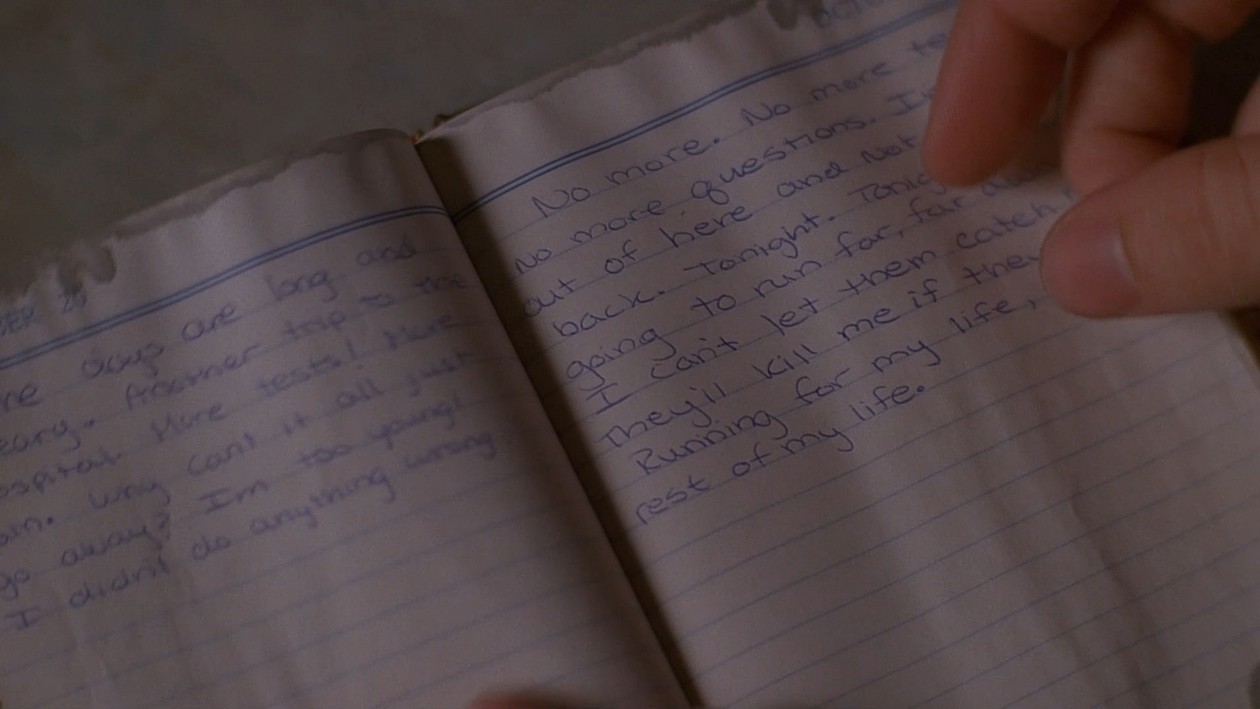 SEP 20
are long and
Another trip to the
More tests! More
Why can't it all just
go away? I'm too young!
I didn't do anything wrong
No more. No more te
No more questions. I'm
out of here and Not
back. Tonight. Tonig
going to run far, far aw
I can't let them catch
They'll kill me if they
Running for my life,
rest of my life.